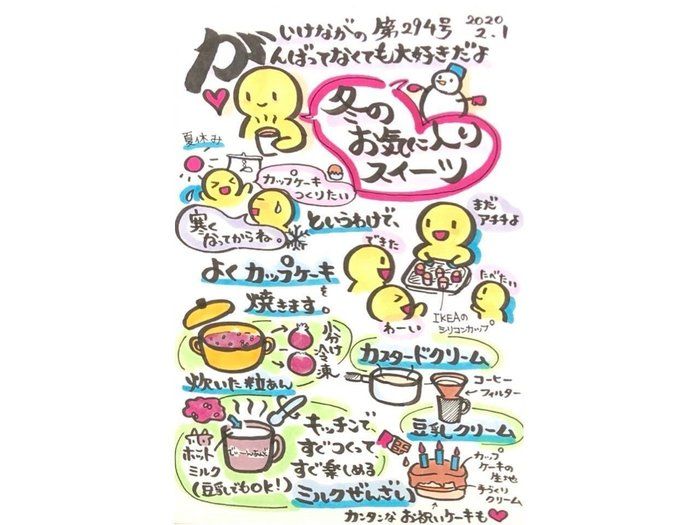 いけながの 第294号
2020
2.1
がんばってなくても大好きだよ
冬の
お気に入り
スイーツ
夏休み
カップケーキ
つくりたい
寒く
なってからね。
というわけで、
よくカップケーキを
焼きます。
まだ
アチチよ
できた
たべたい
わーい
IKEAの
シリコンカップ
小分け
冷凍
炊いた粒あん
カスタードクリーム
コーヒー
フィルター
豆乳クリーム
キッチンで、
すぐつくって
すぐ楽しめる
ミルクぜんざい
ホット
ミルク
(豆乳でもOK!)
カップ
ケーキの
生地
手づくり
クリーム
カンタンな お祝いケーキも